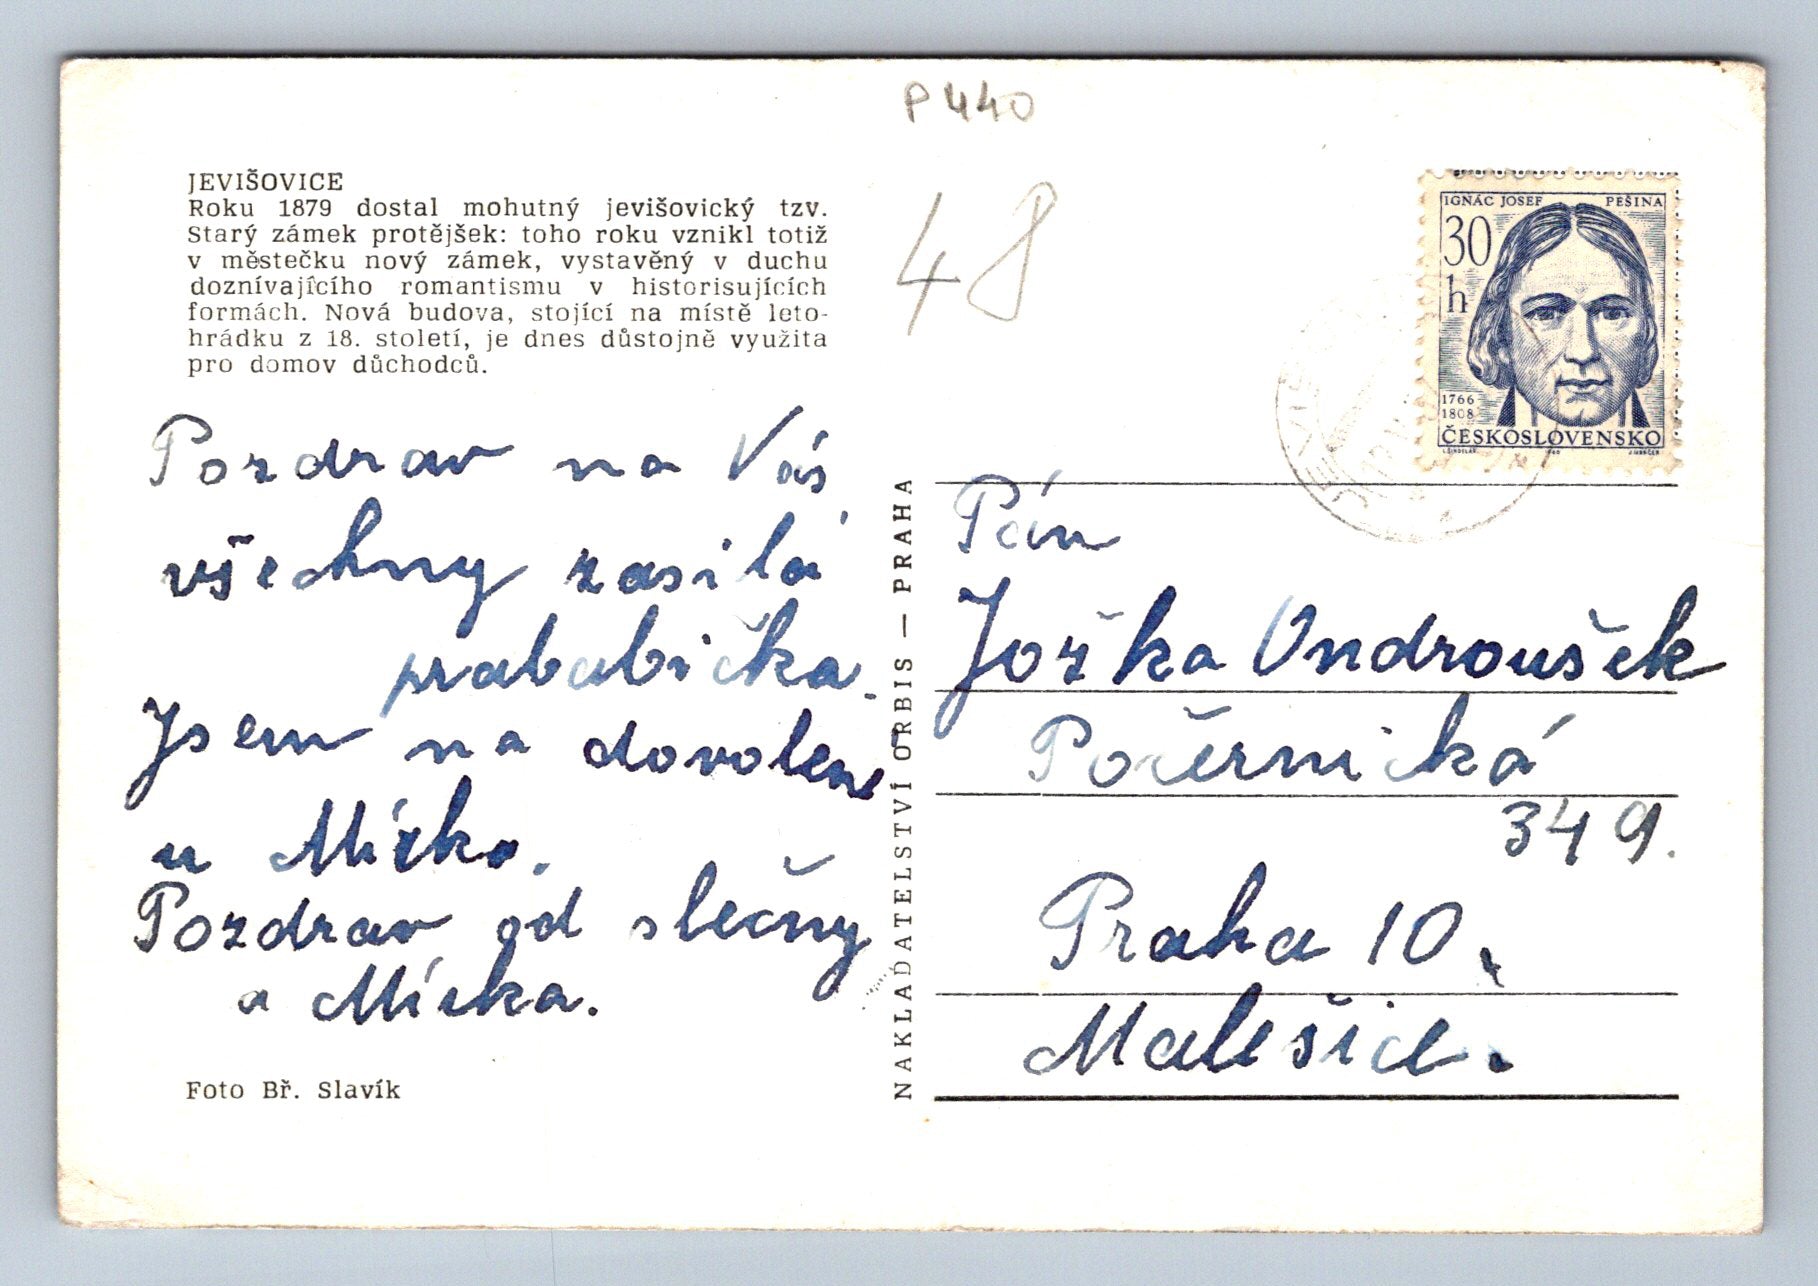 P 440
48
JEVIŠOVICE
Roku 1879 dostal mohutný jevišovický tzv.
Starý zámek protějšek: toho roku vznikl totiž
v městečku nový zámek, vystavěný v duchu
doznívajícího romantismu v historisujících
formách. Nová budova, stojící na místě leto-
hrádku z 18. století, je dnes důstojně využita
pro domov důchodců.
Pozdrav na Vás
všechny zasílá
prababička.
Jsem na dovolené
u Mirko.
Pozdrav od slečny
a Mirka.
Foto Bř. Slavík
NAKLADATELSTVÍ ORBIS — PRAHA
IGNÁC JOSEF PEŠINA
30
h
1766
1808
ČESKOSLOVENSKO
Pán
Jožka Ondroušek
Počernická
349.
Praha 10.
Malešice.